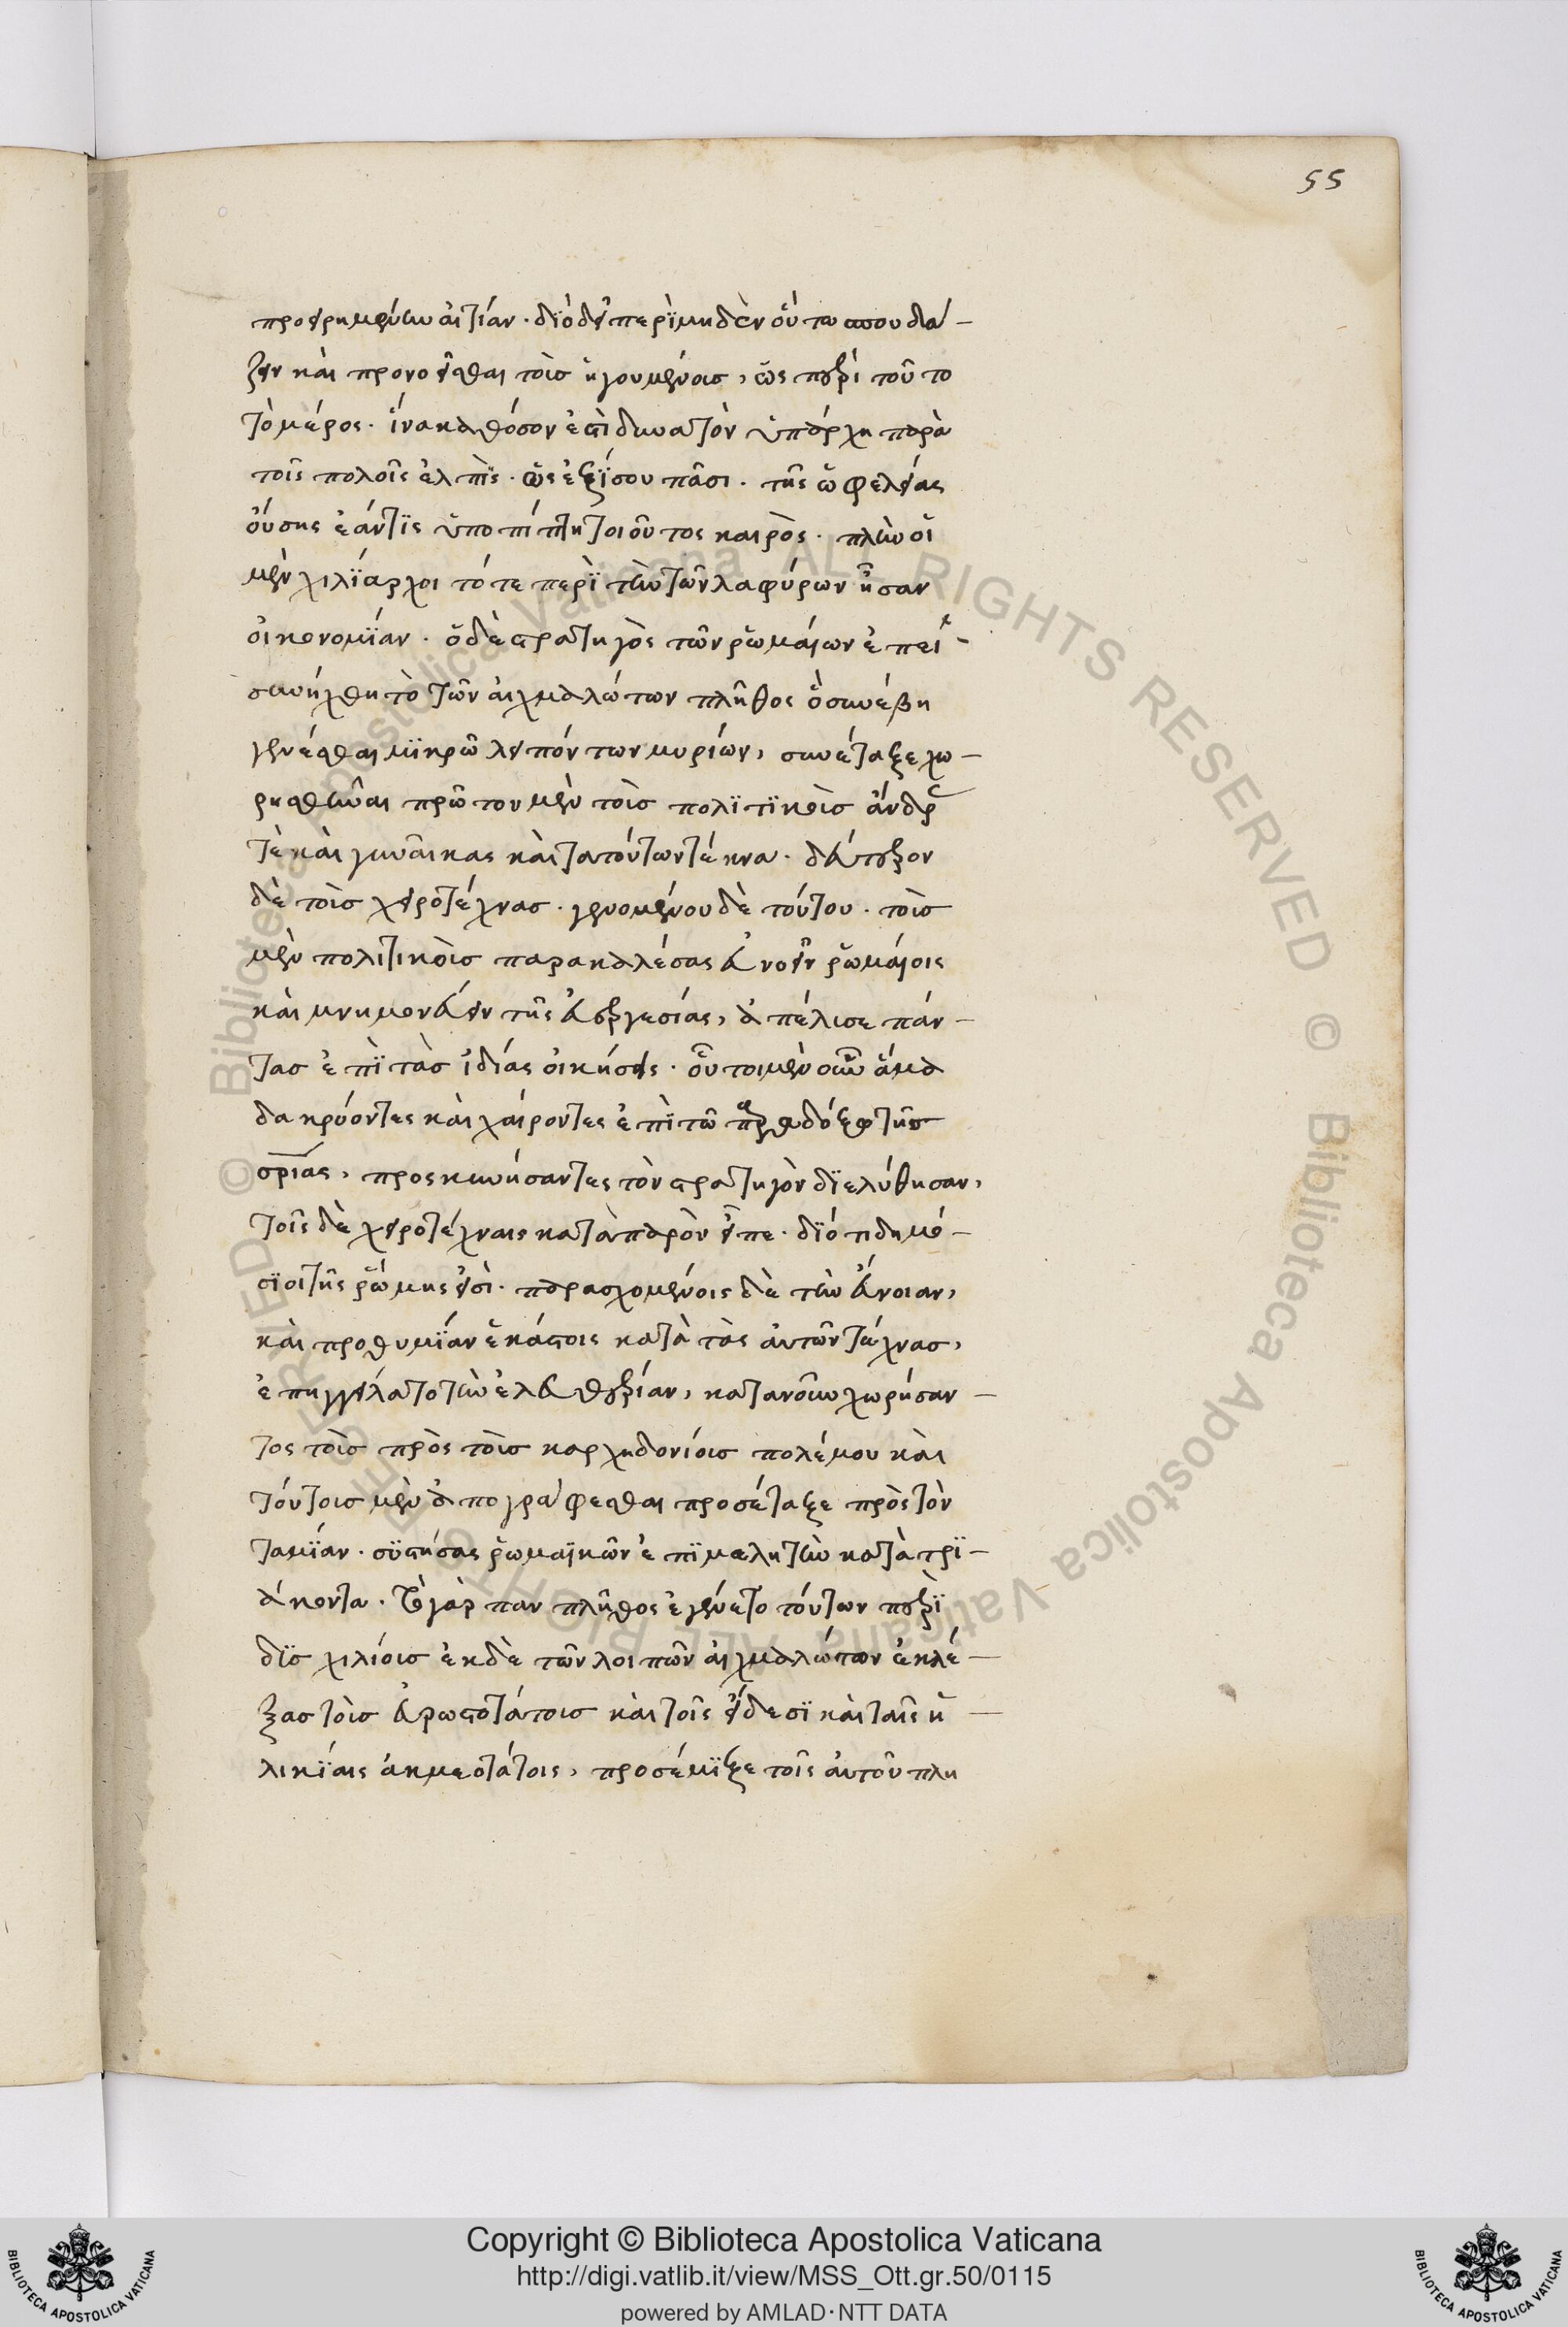 55
προειρημένην αἰτίαν. δϊὸ δεῖ περὶ μηδὲν οὕτω σπουδά-
ζειν καὶ προνοεῖσθαι τοῖσ ἡγουμένοισ, ὡς περὶ τοῦτο
τὸ μέρος. ἵνα καθόσον ἐστὶ δυνατὸν ὑπάρχη παρὰ
τοῖς πολοῖς ἐλπὶς. ὡς ἐξΐσου πᾶσι. τῆς ὠφελείας
οὔσης ἐάν τϊς ὑποπίπτη τοιοῦτος καιρὸς. πλὴν οἱ
μὲν χιλΐαρχοι τότε περὶ τὴν τῶν λαφύρων ἦσαν
οἰκονομΐαν. ὁ δὲ στρατηγὸς τῶν ῥωμαίων ἐπεὶ
συνήχθη τὸ τῶν αἰχμαλώτων πλῆθος ὃ συνέβη
γενέσθαι μϊκρῶ λεῖπόν των μυρίων, συνέταξε χω-
ρησθῆναι πρῶτον μὲν τοὶσ πολϊτϊκοὶσ ἄνδρας
τὲ καὶ γυναῖκας καὶ τα τούτων τέκνα. δεύτερον
δὲ τοὶσ χειροτέχνασ. γενομένου δὲ τούτου. τοὶσ
μὲν πολιτικοὶσ παρακαλέσας εὐνοεῖν ῥωμαίοις
καὶ μνημονεύειν τῆς εὐεργεσίας, ἀπέλυσε πάν-
τασ ἐπῒ τὰσ ἰδίας οἰκήσεις. οὗτοι μὲν οὖν ἅμα
δακρύοντες καὶ χαίροντες ἐπῒ τῶ παραδόξω τῆσ
σρίας, προσκυνήσαντες τὸν στρατηγὸν δϊελύθησαν,
τοῖς δὲ χειροτέχναις κατὰ παρὸν εἶπε. δϊότι δημό-
σϊοι τῆς ῥώμης εἰσὶ. παρασχομένοις δὲ τὴν εὔνοιαν,
καὶ προθυμΐαν ἑκάστοις κατὰ τὰς αὐτῶν τέχνασ,
ἐπηγγείλατο τὴν ἐλευθερίαν, κατανοῦν χωρήσαν-
τος τοὶσ πρὸς τοὶσ καρχηδονίοισ πολέμου καὶ
τούτοισ μὲν ἀπογράφεσθαι προσέταξε πρὸς τὸν
ταμΐαν. συστήσας ῥωμαϊκῶν ἐπϊμελητὴν κατὰ τρϊ-
άκοντα. τὸ γὰρ παν πλῆθος ἐγένετο τούτων περῒ
δϊσ χιλίοισ ἐκ δὲ τῶν λοιπῶν αἰχμαλώτων ἐκλέ-
ξασ τοὶσ εὐρωστοτάτοισ καὶ τοῖς εἴδεσϊ καὶ ταῖς ἡ-
λικΐαις ἀκμεοτάτοις, προσέμϊξε τοῖς αὐτοῦ πλη
Copyright © Biblioteca Apostolica Vaticana
http://digi.vatlib.it/view/MSS_Ott.gr.50/0115
powered by AMLAD·NTT DATA
BIBLIOTECA APOSTOLICA VATICANA
BIBLIOTECA APOSTOLICA VATICANA
© Biblioteca Apostolica Vaticana ALL RIGHTS RESERVED © Biblioteca Apostolica Vaticana ALL RIGHTS RESERVED